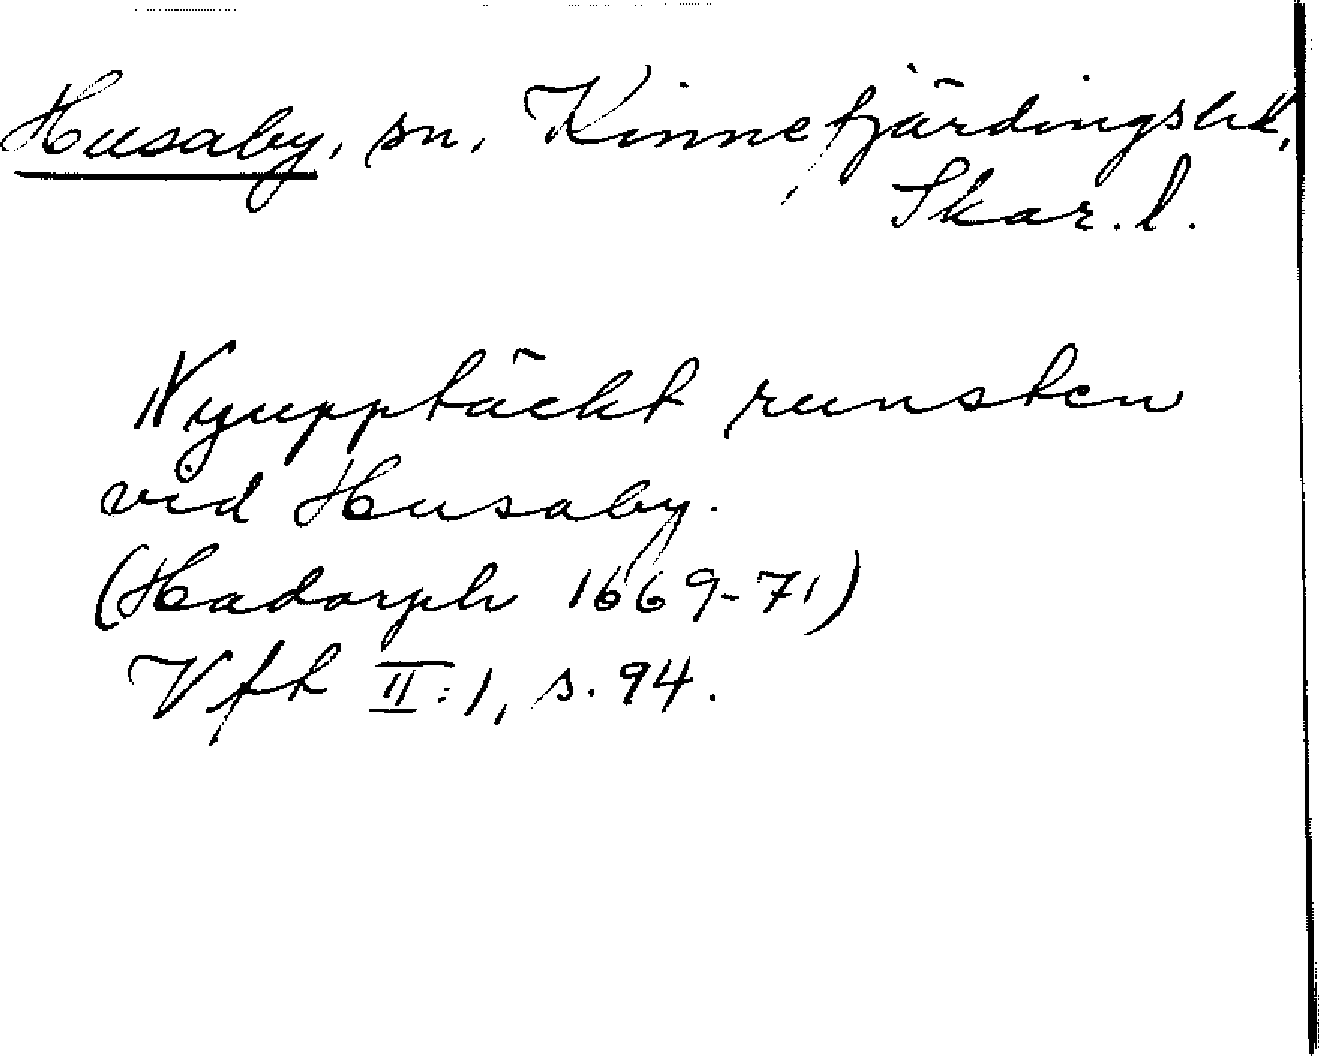 Husaby, sn, Kinnefjärdings hd,
Skar. l.
Nyupptäckt runsten
vid Husaby.
(Hadorph 1669-71)
Vft II:1, s. 94.